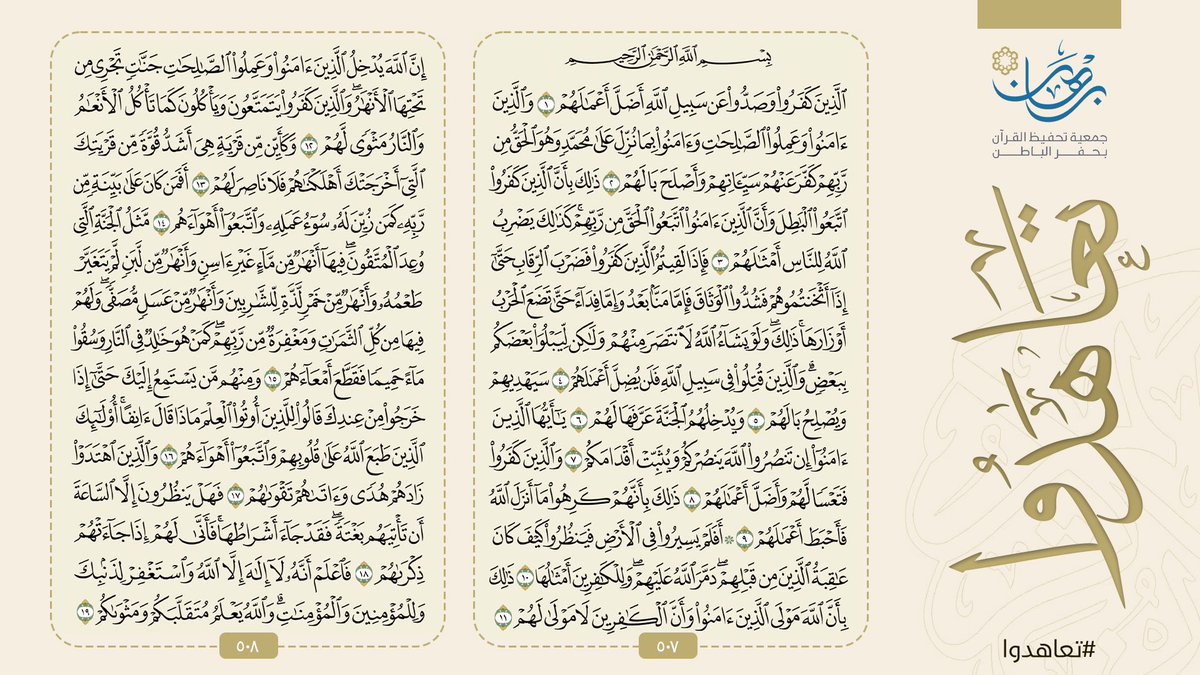 برهان
جمعية تحفيظ القرآن
بحفر الباطن
تعاهدوا
#تعاهدوا
بِسْمِ ٱللَّهِ ٱلرَّحْمَٰنِ ٱلرَّحِيمِ
ٱلَّذِينَ كَفَرُوا۟ وَصَدُّوا۟ عَن سَبِيلِ ٱللَّهِ أَضَلَّ أَعْمَٰلَهُمْ ١ وَٱلَّذِينَ
ءَامَنُوا۟ وَعَمِلُوا۟ ٱلصَّٰلِحَٰتِ وَءَامَنُوا۟ بِمَا نُزِّلَ عَلَىٰ مُحَمَّدٍ وَهُوَ ٱلْحَقُّ مِن
رَّبِّهِمْ كَفَّرَ عَنْهُمْ سَيِّـَٔاتِهِمْ وَأَصْلَحَ بَالَهُمْ ٢ ذَٰلِكَ بِأَنَّ ٱلَّذِينَ كَفَرُوا۟
ٱتَّبَعُوا۟ ٱلْبَٰطِلَ وَأَنَّ ٱلَّذِينَ ءَامَنُوا۟ ٱتَّبَعُوا۟ ٱلْحَقَّ مِن رَّبِّهِمْ ۚ كَذَٰلِكَ يَضْرِبُ
ٱللَّهُ لِلنَّاسِ أَمْثَٰلَهُمْ ٣ فَإِذَا لَقِيتُمُ ٱلَّذِينَ كَفَرُوا۟ فَضَرْبَ ٱلرِّقَابِ حَتَّىٰٓ
إِذَآ أَثْخَنتُمُوهُمْ فَشُدُّوا۟ ٱلْوَثَاقَ فَإِمَّا مَنًّۢا بَعْدُ وَإِمَّا فِدَآءً حَتَّىٰ تَضَعَ ٱلْحَرْبُ
أَوْزَارَهَا ۚ ذَٰلِكَ ۖ وَلَوْ يَشَآءُ ٱللَّهُ لَٱنتَصَرَ مِنْهُمْ وَلَٰكِن لِّيَبْلُوَا۟ بَعْضَكُم
بِبَعْضٍ ۗ وَٱلَّذِينَ قُتِلُوا۟ فِى سَبِيلِ ٱللَّهِ فَلَن يُضِلَّ أَعْمَٰلَهُمْ ٤ سَيَهْدِيهِمْ
وَيُصْلِحُ بَالَهُمْ ٥ وَيُدْخِلُهُمُ ٱلْجَنَّةَ عَرَّفَهَا لَهُمْ ٦ يَٰٓأَيُّهَا ٱلَّذِينَ
ءَامَنُوٓا۟ إِن تَنصُرُوا۟ ٱللَّهَ يَنصُرْكُمْ وَيُثَبِّتْ أَقْدَامَكُمْ ٧ وَٱلَّذِينَ كَفَرُوا۟
فَتَعْسًا لَّهُمْ وَأَضَلَّ أَعْمَٰلَهُمْ ٨ ذَٰلِكَ بِأَنَّهُمْ كَرِهُوا۟ مَآ أَنزَلَ ٱللَّهُ
فَأَحْبَطَ أَعْمَٰلَهُمْ ٩ ۞ أَفَلَمْ يَسِيرُوا۟ فِى ٱلْأَرْضِ فَيَنظُرُوا۟ كَيْفَ كَانَ
عَٰقِبَةُ ٱلَّذِينَ مِن قَبْلِهِمْ ۚ دَمَّرَ ٱللَّهُ عَلَيْهِمْ ۖ وَلِلْكَٰفِرِينَ أَمْثَٰلُهَا ١٠ ذَٰلِكَ
بِأَنَّ ٱللَّهَ مَوْلَى ٱلَّذِينَ ءَامَنُوا۟ وَأَنَّ ٱلْكَٰفِرِينَ لَا مَوْلَىٰ لَهُمْ ١١
٥٠٧
إِنَّ ٱللَّهَ يُدْخِلُ ٱلَّذِينَ ءَامَنُوا۟ وَعَمِلُوا۟ ٱلصَّٰلِحَٰتِ جَنَّٰتٍ تَجْرِى مِن
تَحْتِهَا ٱلْأَنْهَٰرُ ۖ وَٱلَّذِينَ كَفَرُوا۟ يَتَمَتَّعُونَ وَيَأْكُلُونَ كَمَا تَأْكُلُ ٱلْأَنْعَٰمُ
وَٱلنَّارُ مَثْوًى لَّهُمْ ١٢ وَكَأَيِّن مِّن قَرْيَةٍ هِىَ أَشَدُّ قُوَّةً مِّن قَرْيَتِكَ
ٱلَّتِىٓ أَخْرَجَتْكَ أَهْلَكْنَٰهُمْ فَلَا نَاصِرَ لَهُمْ ١٣ أَفَمَن كَانَ عَلَىٰ بَيِّنَةٍ مِّن
رَّبِّهِۦ كَمَن زُيِّنَ لَهُۥ سُوٓءُ عَمَلِهِۦ وَٱتَّبَعُوٓا۟ أَهْوَآءَهُم ١٤ مَّثَلُ ٱلْجَنَّةِ ٱلَّتِى
وُعِدَ ٱلْمُتَّقُونَ ۖ فِيهَآ أَنْهَٰرٌ مِّن مَّآءٍ غَيْرِ ءَاسِنٍ وَأَنْهَٰرٌ مِّن لَّبَنٍ لَّمْ يَتَغَيَّرْ
طَعْمُهُۥ وَأَنْهَٰرٌ مِّنْ خَمْرٍ لَّذَّةٍ لِّلشَّٰرِبِينَ وَأَنْهَٰرٌ مِّنْ عَسَلٍ مُّصَفًّى ۖ وَلَهُمْ
فِيهَا مِن كُلِّ ٱلثَّمَرَٰتِ وَمَغْفِرَةٌ مِّن رَّبِّهِمْ ۖ كَمَنْ هُوَ خَٰلِدٌ فِى ٱلنَّارِ وَسُقُوا۟
مَآءً حَمِيمًا فَقَطَّعَ أَمْعَآءَهُمْ ١٥ وَمِنْهُم مَّن يَسْتَمِعُ إِلَيْكَ حَتَّىٰٓ إِذَا
خَرَجُوا۟ مِنْ عِندِكَ قَالُوا۟ لِلَّذِينَ أُوتُوا۟ ٱلْعِلْمَ مَاذَا قَالَ ءَانِفًا ۚ أُو۟لَٰٓئِكَ
ٱلَّذِينَ طَبَعَ ٱللَّهُ عَلَىٰ قُلُوبِهِمْ وَٱتَّبَعُوٓا۟ أَهْوَآءَهُمْ ١٦ وَٱلَّذِينَ ٱهْتَدَوْا۟
زَادَهُمْ هُدًى وَءَاتَىٰهُمْ تَقْوَىٰهُمْ ١٧ فَهَلْ يَنظُرُونَ إِلَّا ٱلسَّاعَةَ
أَن تَأْتِيَهُم بَغْتَةً ۖ فَقَدْ جَآءَ أَشْرَاطُهَا ۚ فَأَنَّىٰ لَهُمْ إِذَا جَآءَتْهُمْ
ذِكْرَىٰهُمْ ١٨ فَٱعْلَمْ أَنَّهُۥ لَآ إِلَٰهَ إِلَّا ٱللَّهُ وَٱسْتَغْفِرْ لِذَنۢبِكَ
وَلِلْمُؤْمِنِينَ وَٱلْمُؤْمِنَٰتِ ۗ وَٱللَّهُ يَعْلَمُ مُتَقَلَّبَكُمْ وَمَثْوَىٰكُمْ ١٩
٥٠٨